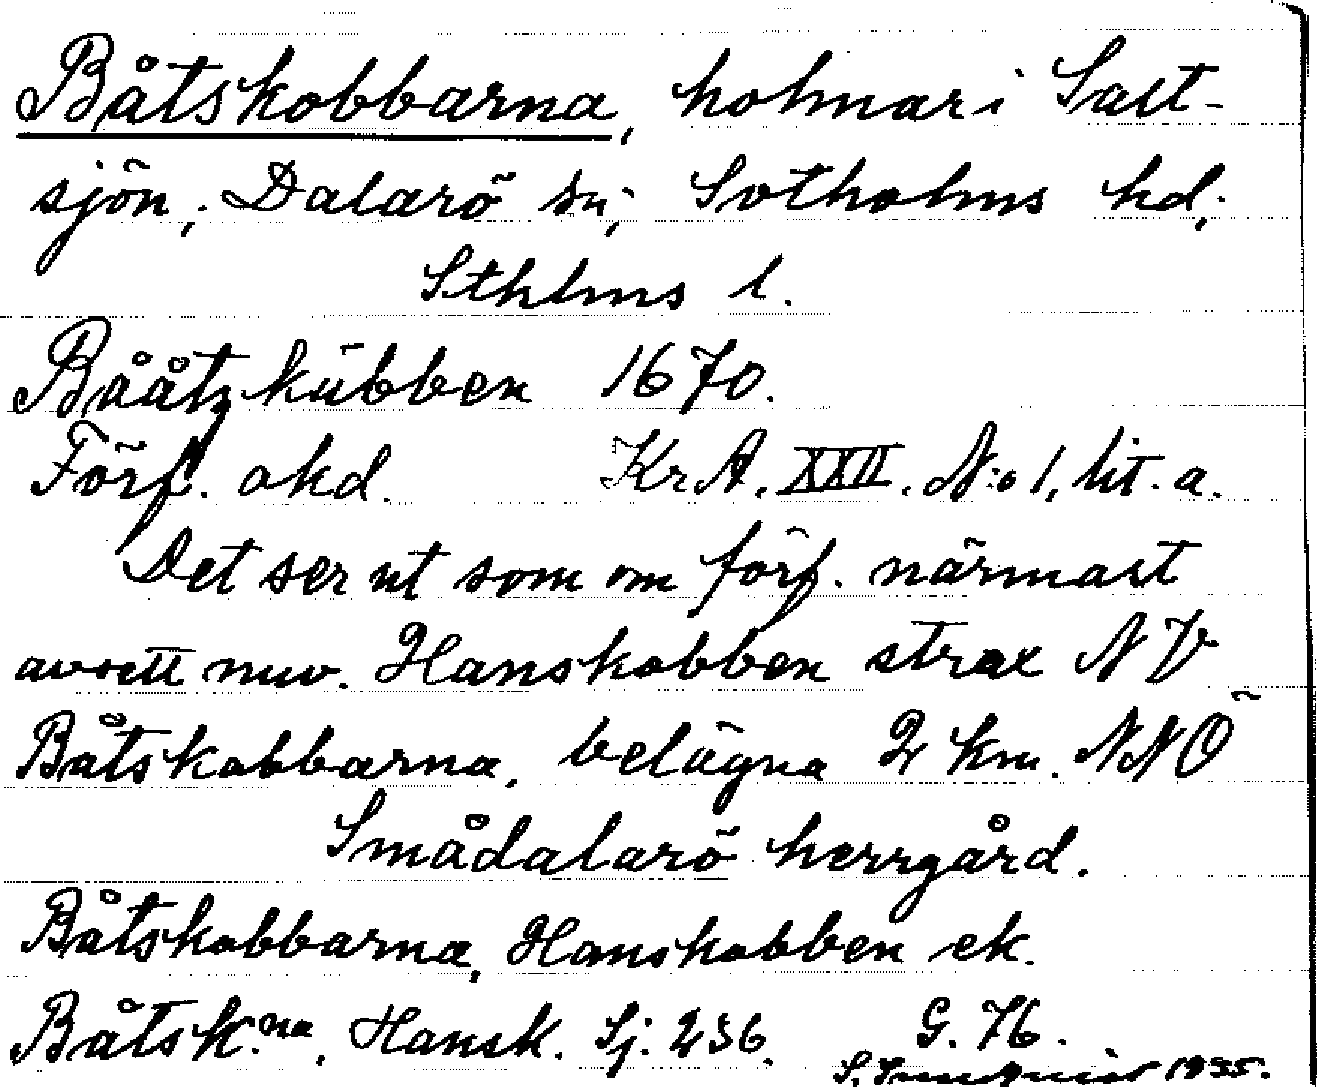 Båtskobbarna, holmar i Salt-
sjön, Dalarö sn, Sotholms hd,
Sthlms l.
Bååtzkübben 1670.
Förf. okd. KrA. XXII. N:o 1, lit. a.
Det ser ut som om förf. närmast
avsett nuv. Hanskobben strax NV
Båtskobbarna, belägna 2 km. NNÖ
Smådalarö herrgård.
Båtskobbarna, Hanskobben ek.
Båtsk:na, Hansk. Sj. 236. G. 76.
S. 1935.